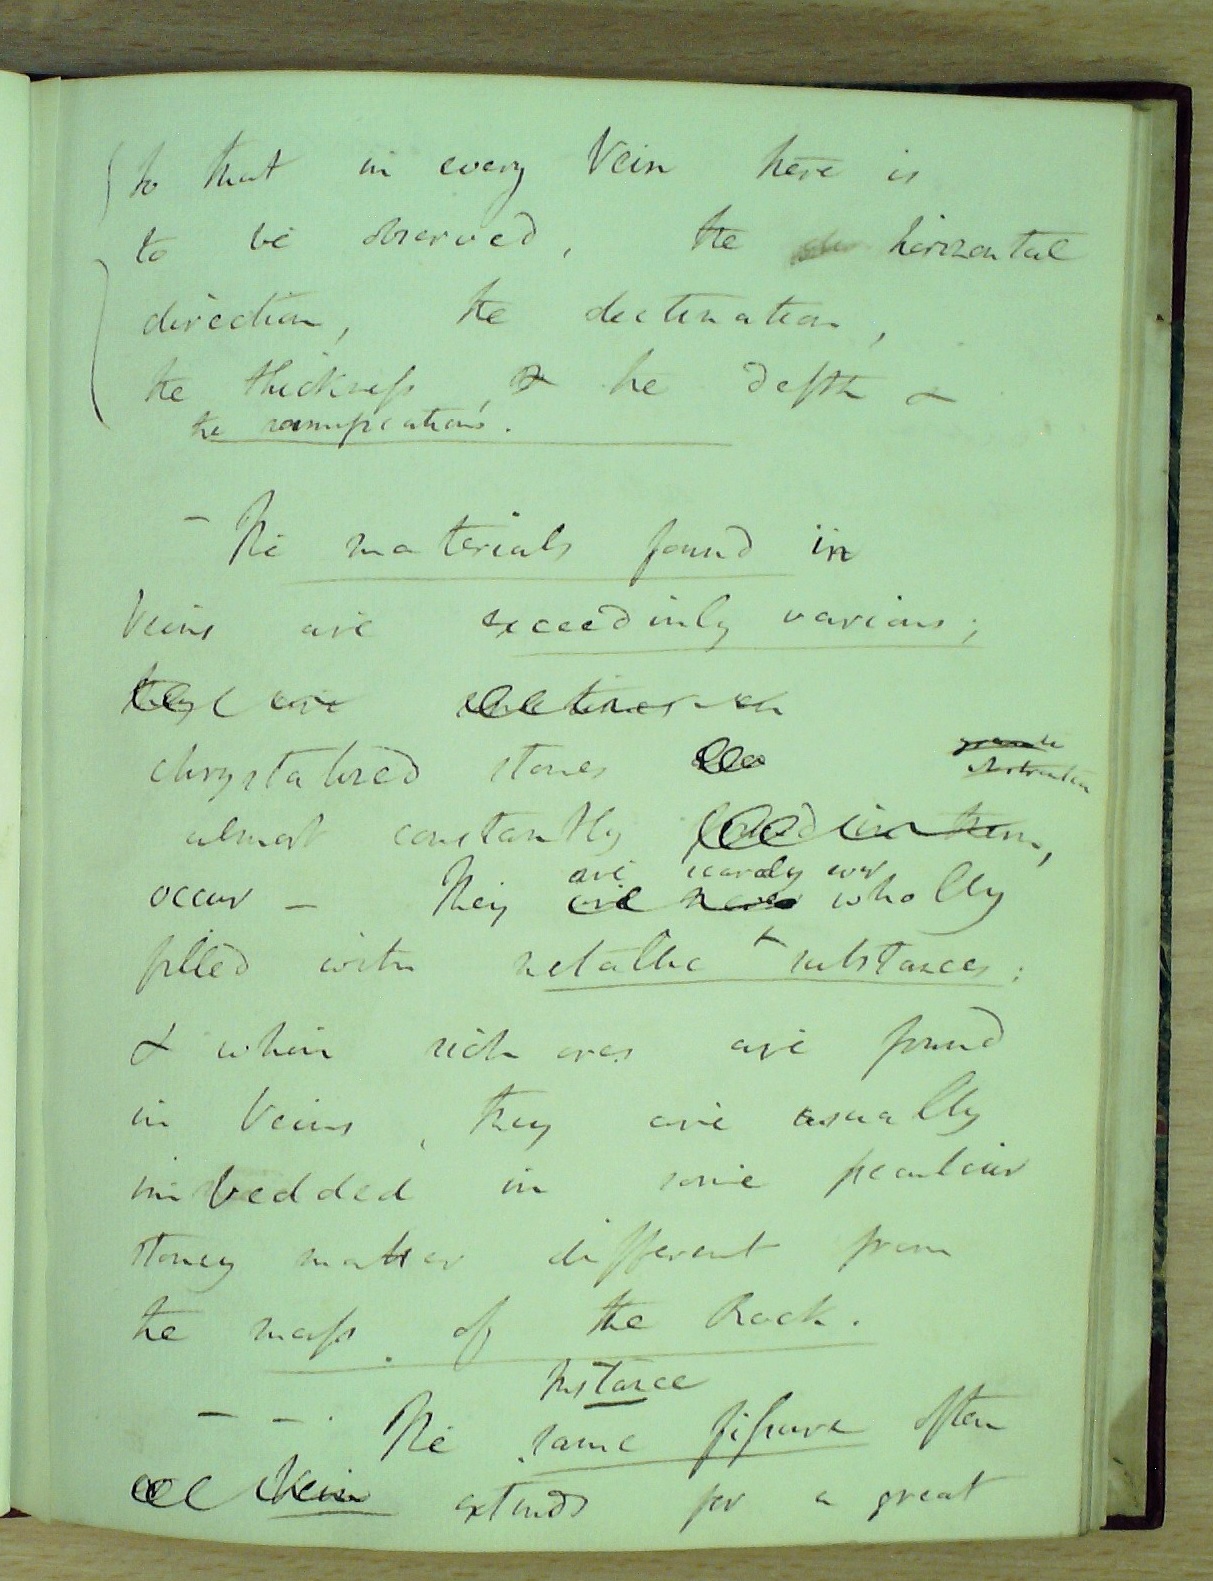 so that in every Vein there is
to be observed, the horizontal
direction, the declination,
the thickness, & the depth &
the ramifications.
- The materials found in
Veins are exceedinly various;
they are
chrystalized stones
almost constantly found in them,
are scarcely ever
occur - They are never wholly
filled with metallic substances;
& when rich ores are found
in Veins, they are usually
imbedded in some peculiar
stoney matter different from
the mass of the Rock.
Instance
- - . The same fissure often
or Vein extends for a great